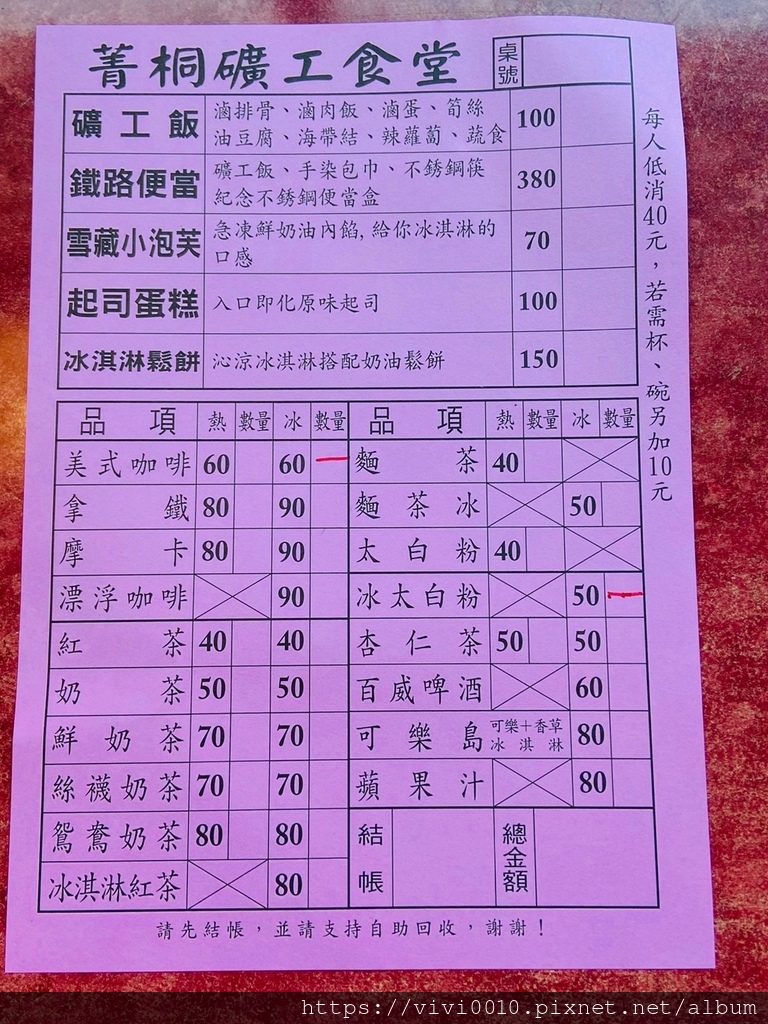 菁桐礦工食堂
桌號
礦工飯 滷排骨、滷肉飯、滷蛋、筍絲 100
油豆腐、海帶結、辣蘿蔔、蔬食
鐵路便當 礦工飯、手染包巾、不銹鋼筷 380
紀念不銹鋼便當盒
雪藏小泡芙 急凍鮮奶油內餡, 給你冰淇淋的 70
口感
起司蛋糕 入口即化原味起司 100
冰淇淋鬆餅 沁涼冰淇淋搭配奶油鬆餅 150
每人低消40元，若需杯、碗另加10元
品項 熱 數量 冰 數量 品項 熱 數量 冰 數量
美式咖啡 60 60 麵茶 40
拿鐵 80 90 麵茶冰 50
摩卡 80 90 太白粉 40
漂浮咖啡 90 冰太白粉 50
紅茶 40 40 杏仁茶 50 50
奶茶 50 50 百威啤酒 60
鮮奶茶 70 70 可樂島 可樂+香草冰淇淋 80
絲襪奶茶 70 70 蘋果汁 80
鴛鴦奶茶 80 80 結帳 總金額
冰淇淋紅茶 80
請先結帳，並請支持自助回收，謝謝！
https://vivi0010.pixnet.net/album